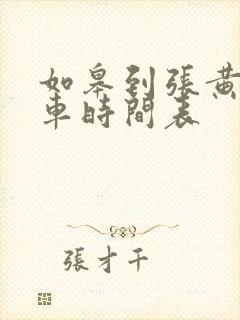 如皋到張黃
車時間表
張才干